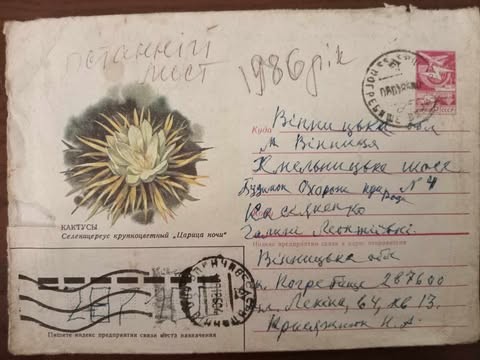 останній
лист
1986 рік
КАКТУСЫ
Селеницереус крупноцветный „Царица ночи“
Куда
Вінницька обл
м Вінниця
Хмельницьке шосе
Будинок Охорони природи № 4
Галині Леонтіївні
Индекс предприятия связи и адрес отправителя
Вінницька обл
Погребище 287600
вул. Леніна, 64, кв 13.
Пишите индекс предприятия связи места назначения